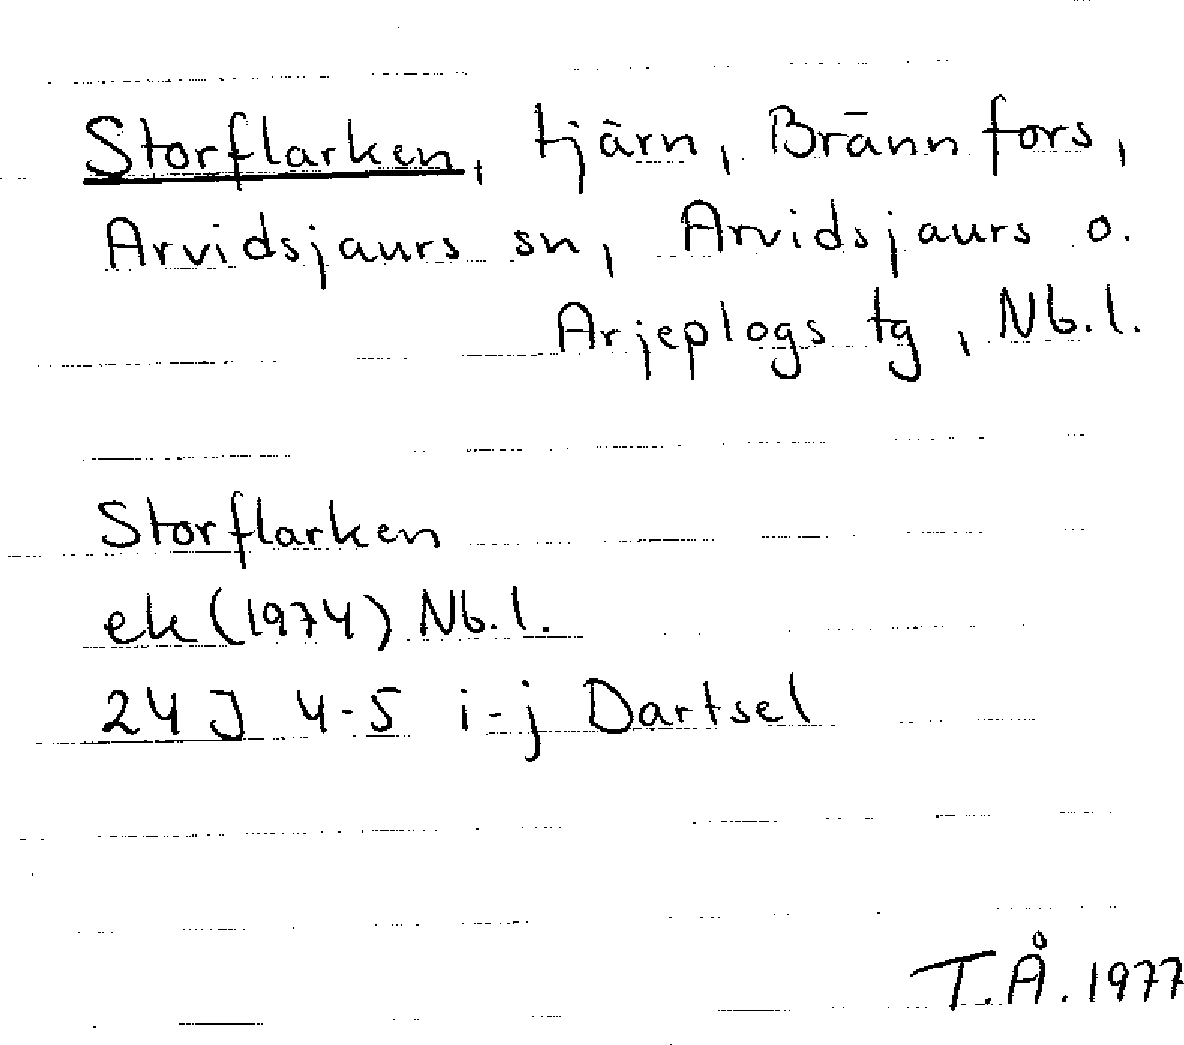 Storflarken, tjärn, Brännfors,
Arvidsjaurs sn, Arvidsjaurs o.
Arjeplogs tg, Nb.l.
Storflarken
ek (1974) Nb.l.
24 J 4-5 i-j Dartsel
T.Å. 1977